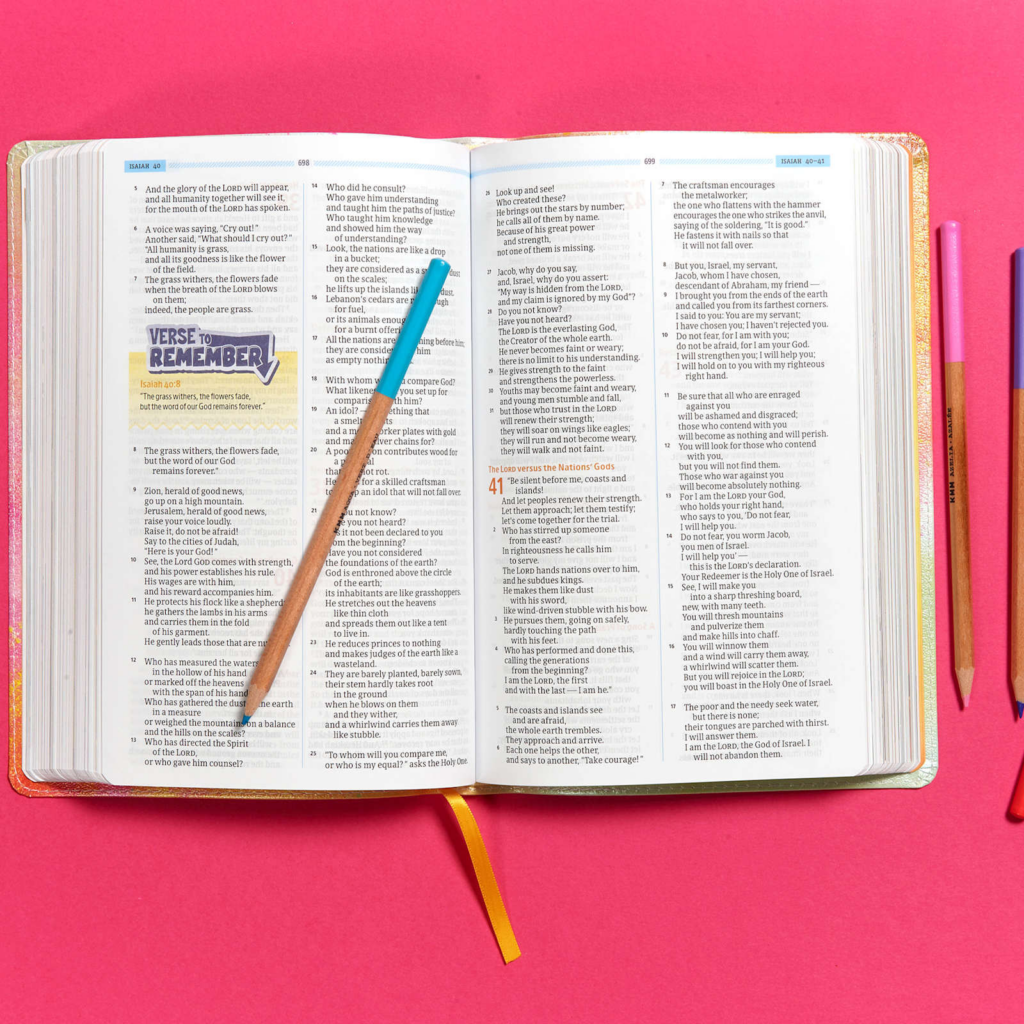 ISAIAH 40
698
5 And the glory of the LORD will appear,
and all humanity together will see it,
for the mouth of the LORD has spoken.
6 A voice was saying, "Cry out!"
Another said, "What should I cry out?"
"All humanity is grass,
and all its goodness is like the flower
of the field.
7 The grass withers, the flowers fade
when the breath of the LORD blows
on them;
indeed, the people are grass.
VERSE TO
REMEMBER
Isaiah 40:8
"The grass withers, the flowers fade,
but the word of our God remains forever."
8 The grass withers, the flowers fade,
but the word of our God
remains forever."
9 Zion, herald of good news,
go up on a high mountain.
Jerusalem, herald of good news,
raise your voice loudly.
Raise it, do not be afraid!
Say to the cities of Judah,
"Here is your God!"
10 See, the Lord GOD comes with strength,
and his power establishes his rule.
His wages are with him,
and his reward accompanies him.
11 He protects his flock like a shepherd;
he gathers the lambs in his arms
and carries them in the fold
of his garment.
He gently leads those that are
12 Who has measured the waters
in the hollow of his hand
or marked off the heavens
with the span of his hand
Who has gathered the dust the earth
in a measure
or weighed the mountains on a balance
and the hills on the scales?
13 Who has directed the Spirit
of the LORD,
or who gave him counsel?
14 Who did he consult?
Who gave him understanding
and taught him the paths of justice?
Who taught him knowledge
and showed him the way
of understanding?
15 Look, the nations are like a drop
in a bucket;
they are considered as a dust
on the scales;
he lifts up the islands dust.
16 Lebanon's cedars are
for fuel,
or its animals
for a burnt
17 All the nations before him;
they are him
as empty
18 With whom compare God?
What you set up for
him?
19 An idol? that
a
and a plates with gold
and chains for?
20 A contributes wood for
a
that not rot.
He for a skilled craftsman
to an idol that will not fall over.
21 you not know?
you not heard?
it not been declared to you
from the beginning?
Have you not considered
the foundations of the earth?
22 God is enthroned above the circle
of the earth;
its inhabitants are like grasshoppers.
He stretches out the heavens
like thin cloth
and spreads them out like a tent
to live in.
23 He reduces princes to nothing
and makes judges of the earth like a
wasteland.
24 They are barely planted, barely sown,
their stem hardly takes root
in the ground
when he blows on them
and they wither,
and a whirlwind carries them away
like stubble.
25 "To whom will you compare me,
or who is my equal?" asks the Holy One.
699
ISAIAH 40–41
26 Look up and see!
Who created these?
He brings out the stars by number;
he calls all of them by name.
Because of his great power
and strength,
not one of them is missing.
27 Jacob, why do you say,
and, Israel, why do you assert:
"My way is hidden from the LORD,
and my claim is ignored by my God"?
28 Do you not know?
Have you not heard?
The LORD is the everlasting God,
the Creator of the whole earth.
He never becomes faint or weary;
there is no limit to his understanding.
29 He gives strength to the faint
and strengthens the powerless.
30 Youths may become faint and weary,
and young men stumble and fall,
31 but those who trust in the LORD
will renew their strength;
they will soar on wings like eagles;
they will run and not become weary,
they will walk and not faint.
The LORD versus the Nations' Gods
41 "Be silent before me, coasts and
islands!
And let peoples renew their strength.
Let them approach; let them testify;
let's come together for the trial.
2 Who has stirred up someone
from the east?
In righteousness he calls him
to serve.
The LORD hands nations over to him,
and he subdues kings.
He makes them like dust
with his sword,
like wind-driven stubble with his bow.
3 He pursues them, going on safely,
hardly touching the path
with his feet.
4 Who has performed and done this,
calling the generations
from the beginning?
I am the LORD, the first
and with the last — I am he."
5 The coasts and islands see
and are afraid,
the whole earth trembles.
They approach and arrive.
6 Each one helps the other,
and says to another, "Take courage!"
7 The craftsman encourages
the metalworker;
the one who flattens with the hammer
encourages the one who strikes the anvil,
saying of the soldering, "It is good."
He fastens it with nails so that
it will not fall over.
8 But you, Israel, my servant,
Jacob, whom I have chosen,
descendant of Abraham, my friend —
9 I brought you from the ends of the earth
and called you from its farthest corners.
I said to you: You are my servant;
I have chosen you; I haven't rejected you.
10 Do not fear, for I am with you;
do not be afraid, for I am your God.
I will strengthen you; I will help you;
I will hold on to you with my righteous
right hand.
11 Be sure that all who are enraged
against you
will be ashamed and disgraced;
those who contend with you
will become as nothing and will perish.
12 You will look for those who contend
with you,
but you will not find them.
Those who war against you
will become absolutely nothing.
13 For I am the LORD your God,
who holds your right hand,
who says to you, 'Do not fear,
I will help you.
14 Do not fear, you worm Jacob,
you men of Israel.
I will help you' —
this is the LORD's declaration.
Your Redeemer is the Holy One of Israel.
15 See, I will make you
into a sharp threshing board,
new, with many teeth.
You will thresh mountains
and pulverize them
and make hills into chaff.
16 You will winnow them
and a wind will carry them away,
a whirlwind will scatter them.
But you will rejoice in the LORD;
you will boast in the Holy One of Israel.
17 The poor and the needy seek water,
but there is none;
their tongues are parched with thirst.
I will answer them.
I am the LORD, the God of Israel. I
will not abandon them.